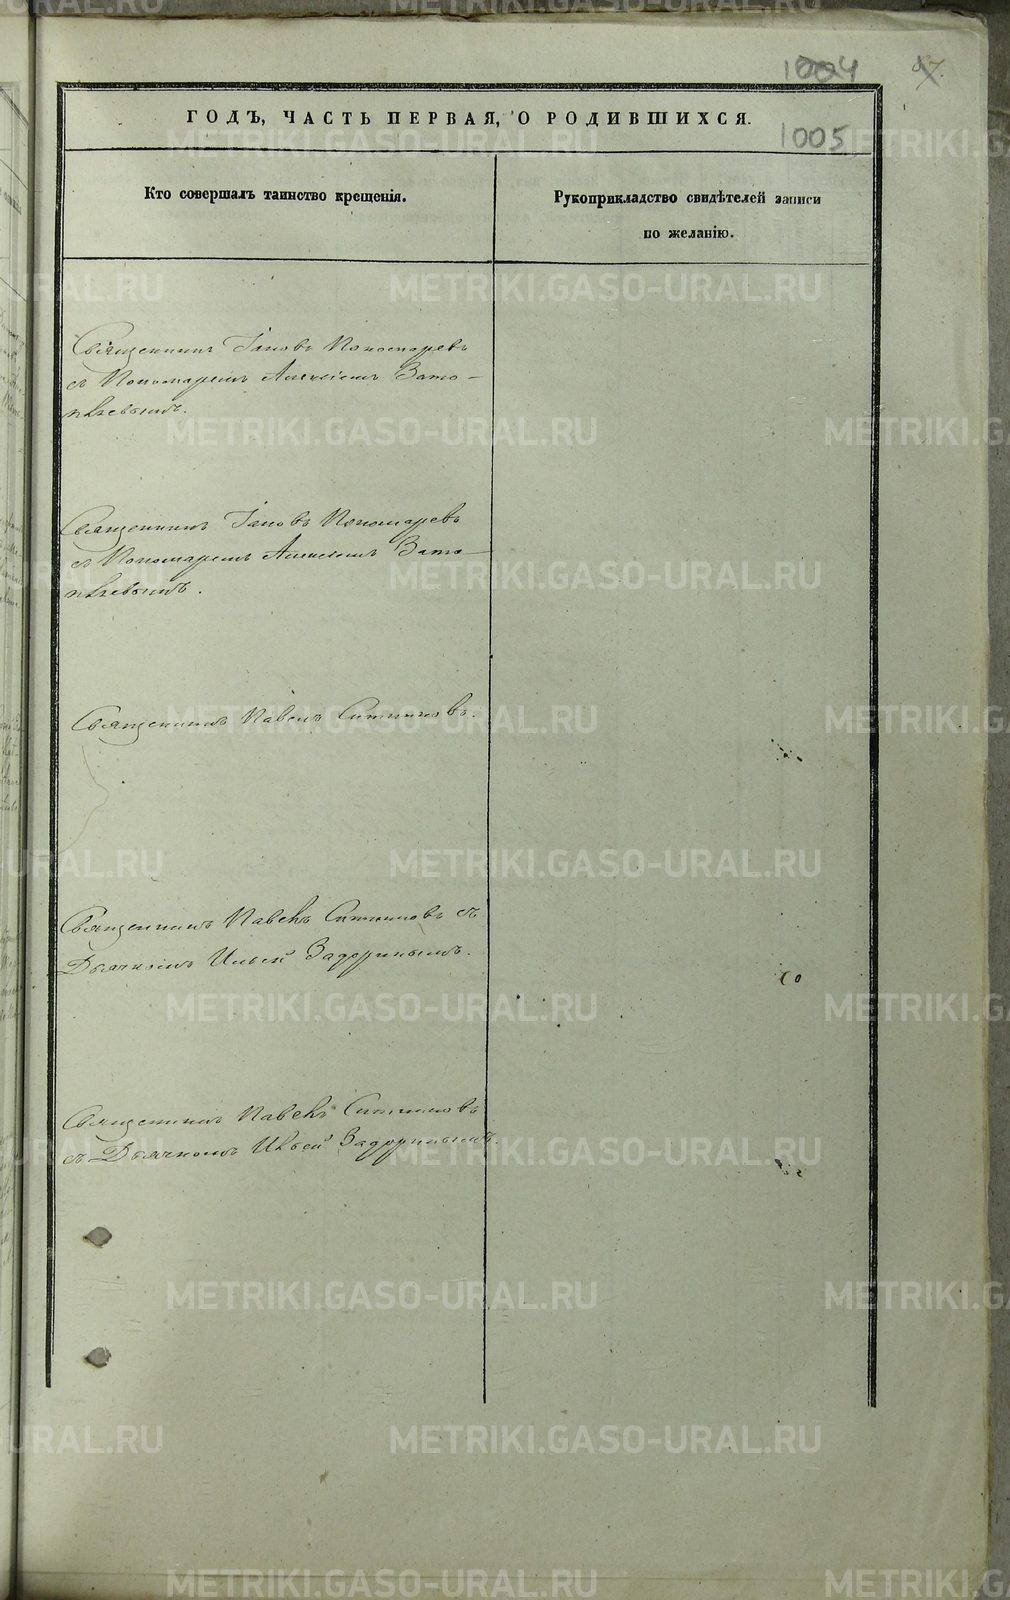 1004
87.
ГОДЪ, ЧАСТЬ ПЕРВАЯ, О РОДИВШИХСЯ.
1005
Кто совершалъ таинство крещенія.
Рукоприкладство свидѣтелей записи
по желанію.
Священникъ Іаковъ Пономаревъ
съ Пономаремъ Алексіемъ Зато-
плясвымъ.
Священникъ Іаковъ Пономаревъ
съ Пономаремъ Алексіемъ Зато-
Священникъ Павелъ Ситниковъ.
Священникъ Павелъ Ситниковъ съ
Дьячкомъ Ильей Задоринымъ.
Священникъ Павелъ Ситниковъ
съ Дьячкомъ Ильей Задоринымъ.
METRIKI.GASO-URAL.RU